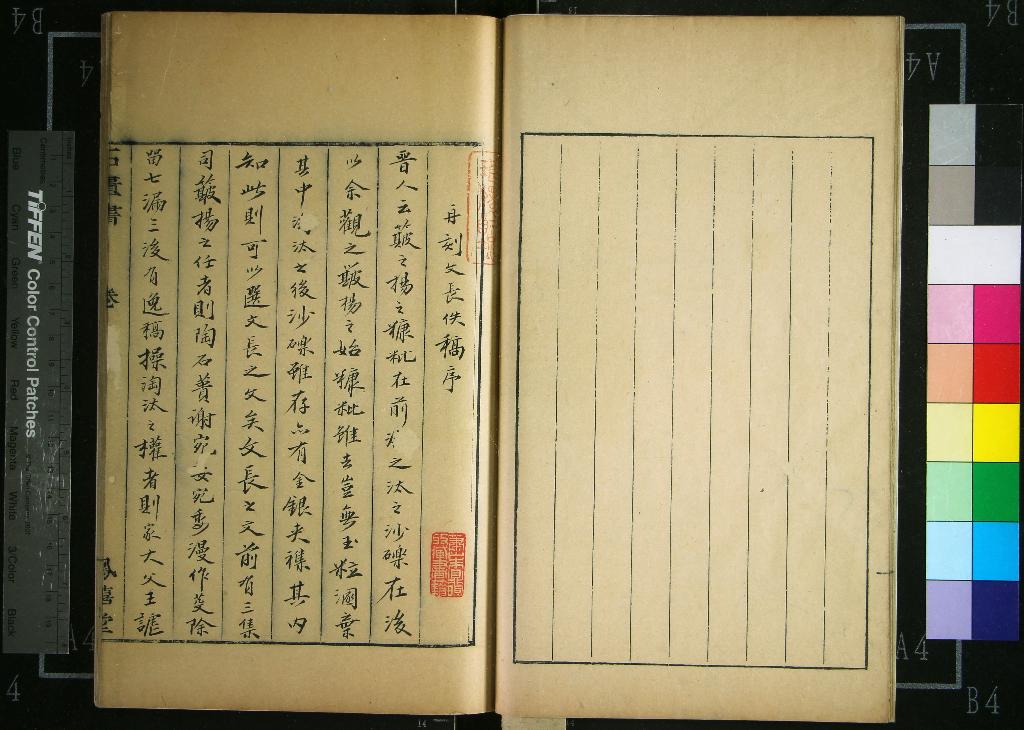 再刻文長佚稿序
晉人云簸之揚之糠粃在前淘之汰之沙礫在後
以余觀之簸揚之始糠粃雖去豈無玉粒溷棄
其中淘汰之後沙礫雖存亦有金銀夾襍其內
知此則可以選文長之文矣文長之文前有三集
司簸揚之任者則陶石蕢謝宛委宛委漫作芟除
留七漏三後有逸稿操淘汰之權者則家大父王謔
石匱書
卷
鳳嬉堂
TIFFEN Color Control Patches
Blue
Cyan
Green
Yellow
Red
Magenta
White
3/Color
Black
B4
A4
A4
B4
4
A4
A4
B4